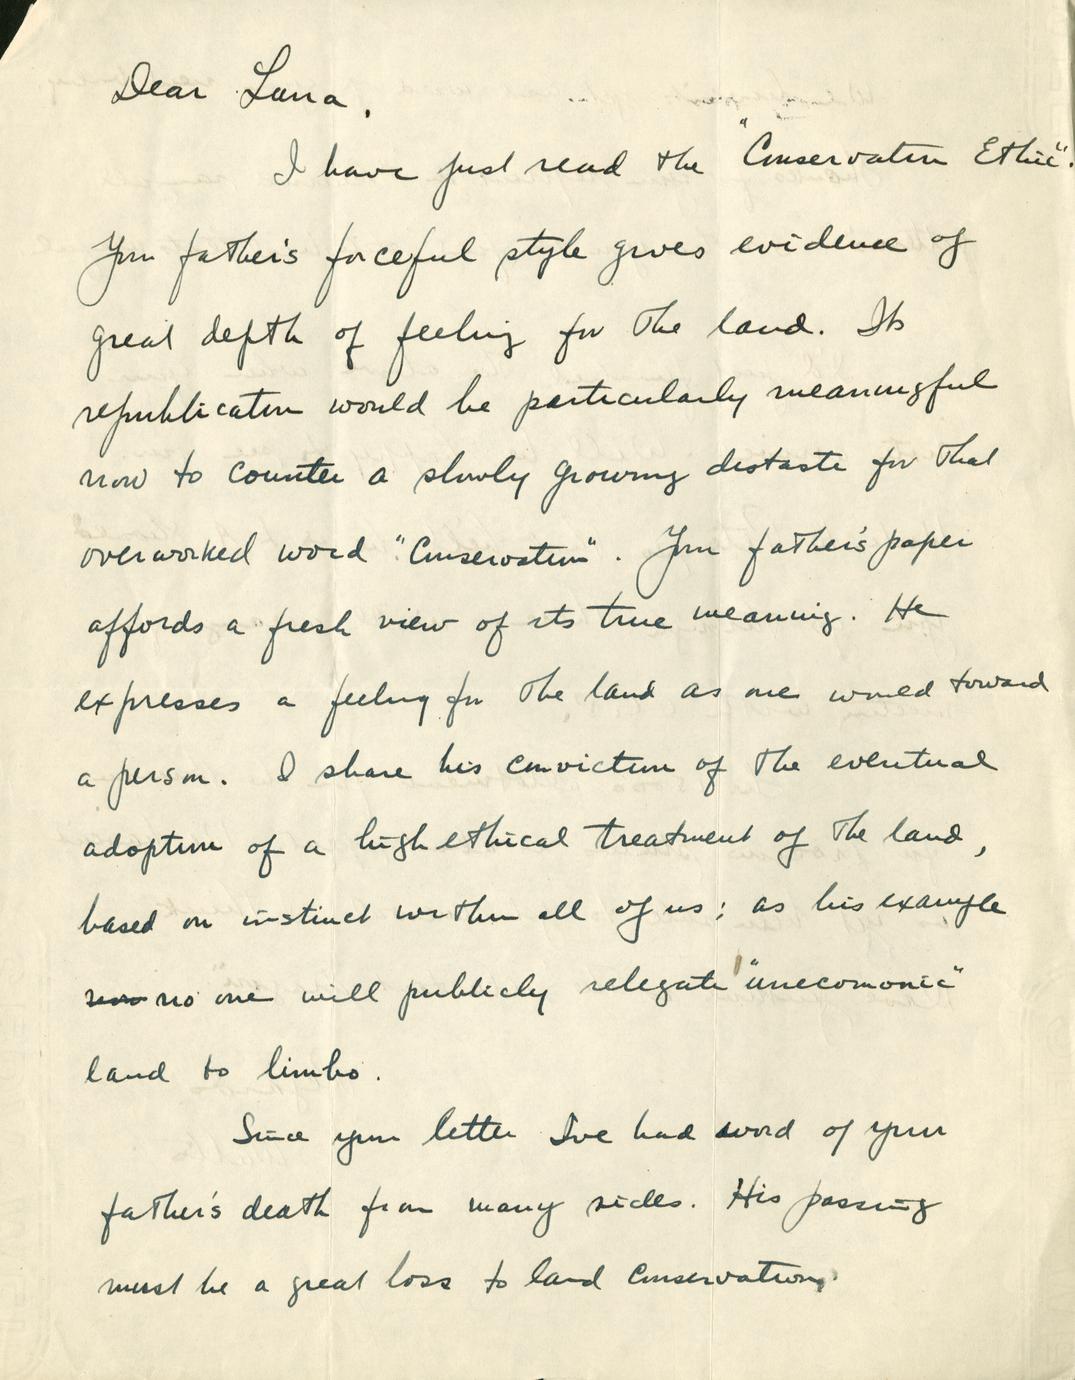 Dear Luna,
I have just read the "Conservation Ethic".
Your father's forceful style gives evidence of
great depth of feeling for the land. Its
republication would be particularly meaningful
now to counter a slowly growing distaste for that
overworked word "Conservation". Your father's paper
affords a fresh view of its true meaning. He
expresses a feeling for the land as one would toward
a person. I share his conviction of the eventual
adoption of a high ethical treatment of the land,
based on instinct within all of us; as his example
now no one will publicly relegate "unecomonic"
land to limbo.
Since your letter I've had word of your
father's death from many sides. His passing
must be a great loss to land conservation.